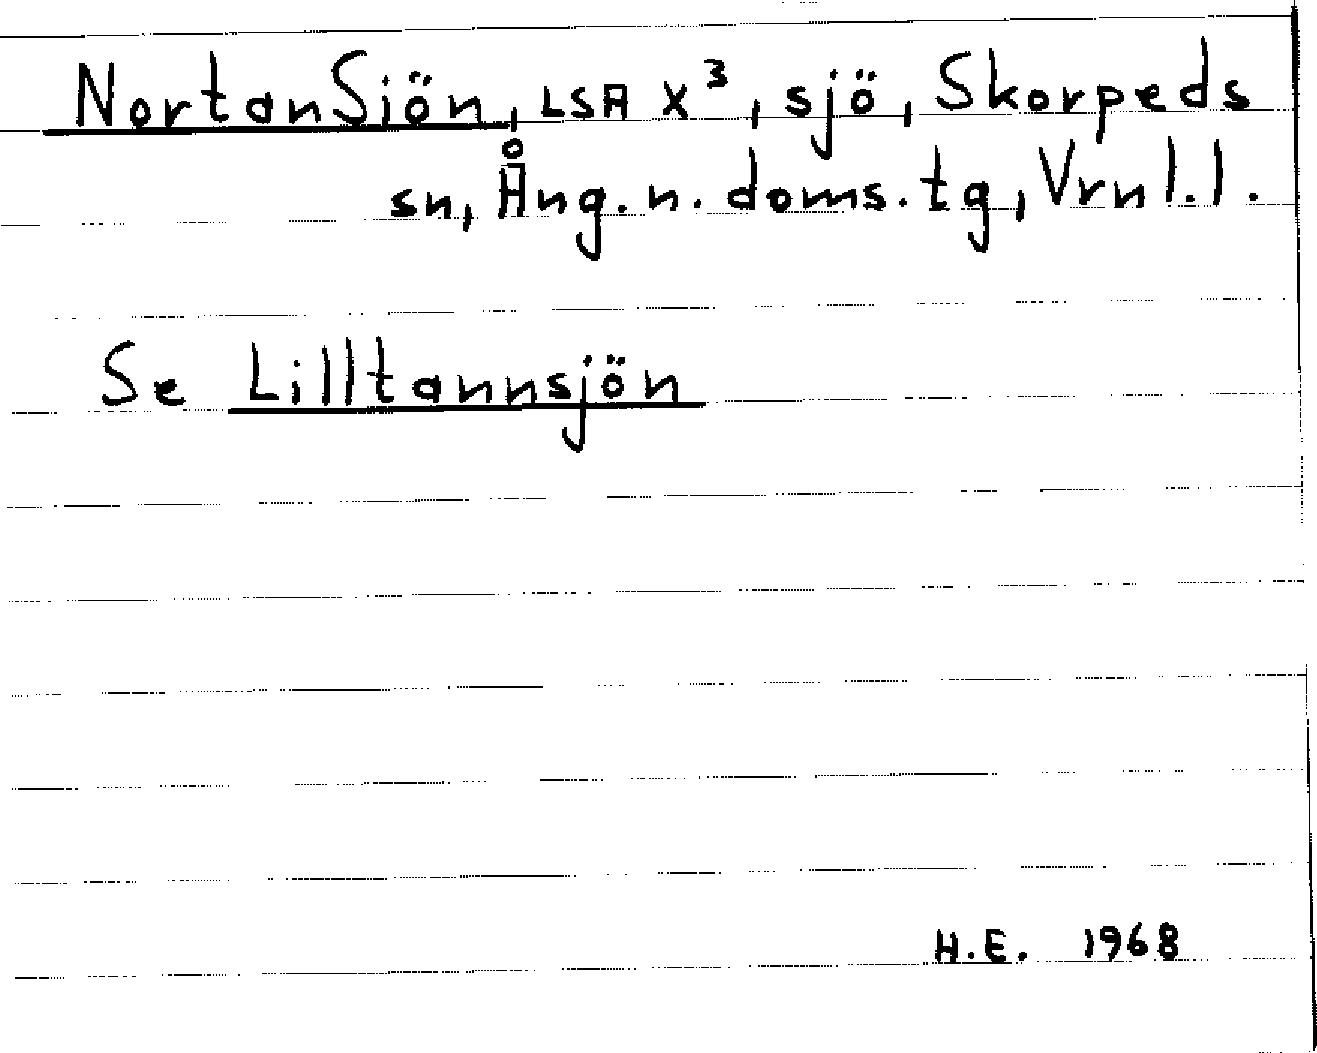 NortanSiön, LSA X³, sjö, Skorpeds
sn, Ång. n. doms. tg, Vrnl. l.
Se Lilltannsjön
H.E. 1968